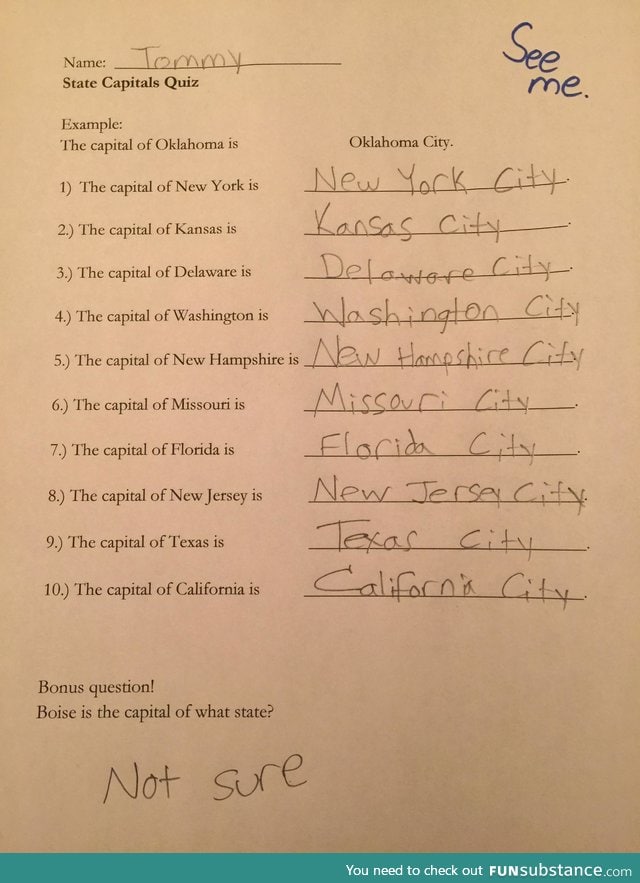 Name: Tommy
See
me.
State Capitals Quiz
Example:
The capital of Oklahoma is Oklahoma City.
1) The capital of New York is New York City.
2.) The capital of Kansas is Kansas City.
3.) The capital of Delaware is Delaware City.
4.) The capital of Washington is Washington City
5.) The capital of New Hampshire is New Hampshire City
6.) The capital of Missouri is Missouri City.
7.) The capital of Florida is Florida City.
8.) The capital of New Jersey is New Jersey City.
9.) The capital of Texas is Texas City.
10.) The capital of California is California City.
Bonus question!
Boise is the capital of what state?
Not sure
You need to check out FUNsubstance.com